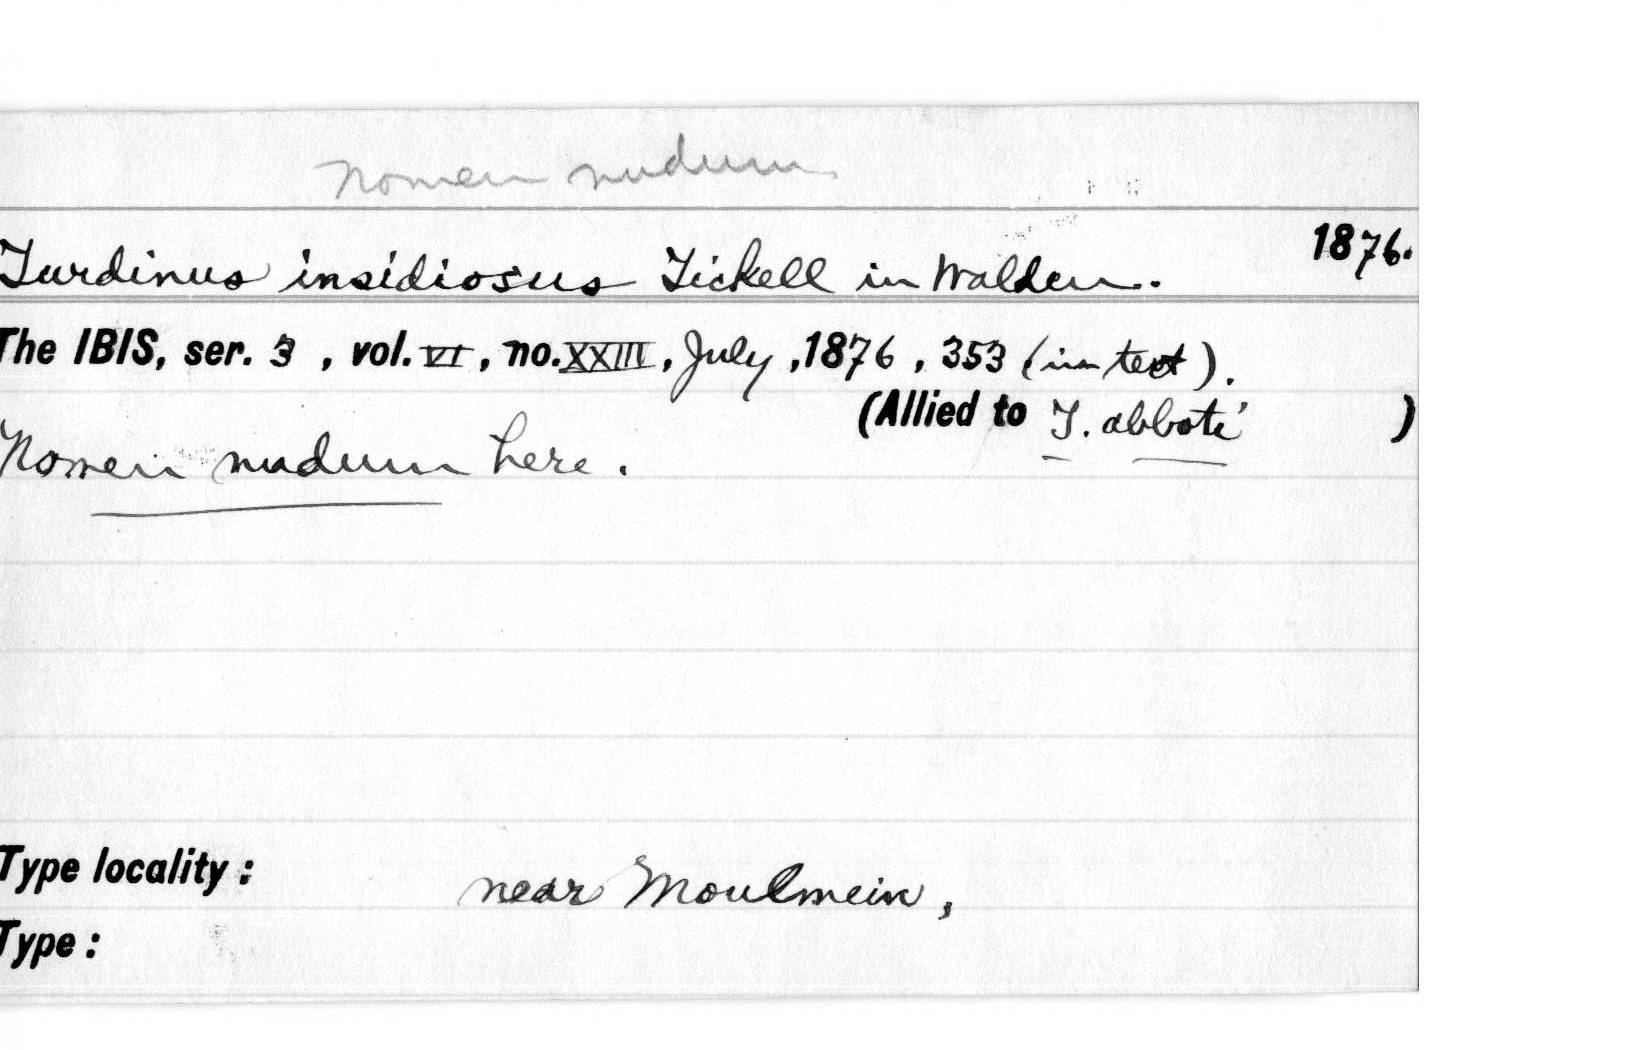 Nomen nudum
1876.
Turdinus insidiosus Tickell in Walden.
The IBIS, ser. 3 , vol. VI, no. XXIII, July ,1876 , 353 (in text).
(Allied to T. abboti )
Nomen nudum here.
Type locality: near Moulmein,
Type: